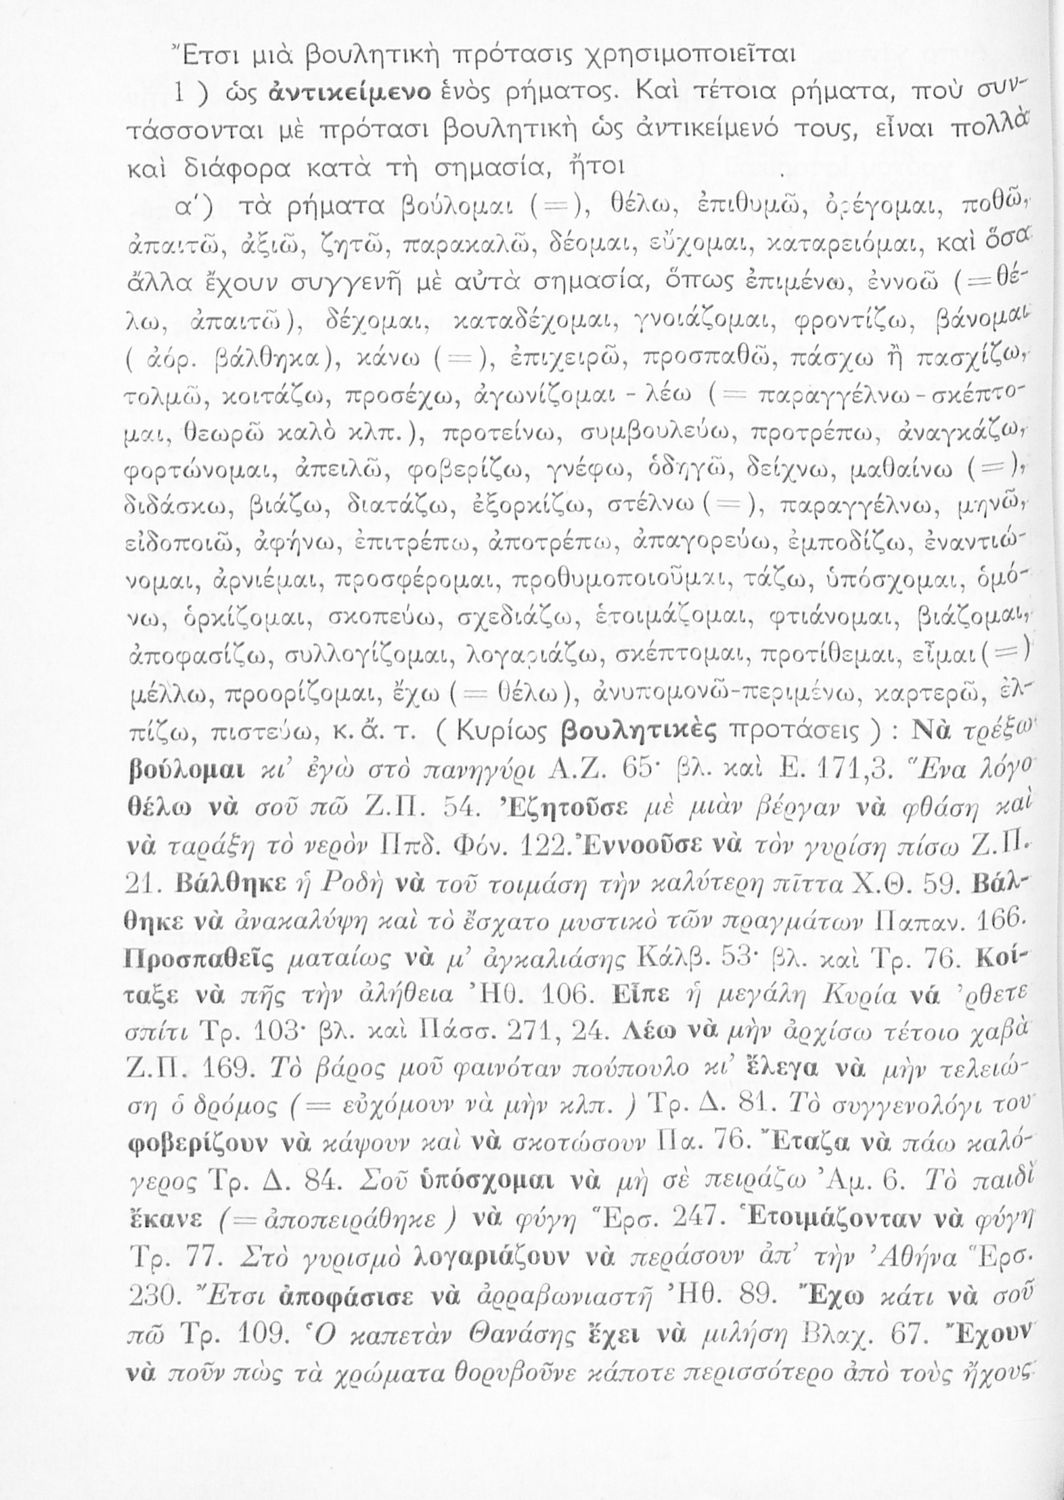 Ἔτσι μιὰ βουλητικὴ πρότασις χρησιμοποιεῖται
1 ) ὡς ἀντικείμενο ἑνὸς ρήματος. Καὶ τέτοια ρήματα, ποὺ συν-
τάσσονται μὲ πρότασι βουλητικὴ ὡς ἀντικείμενό τους, εἶναι πολλὰ
καὶ διάφορα κατὰ τὴ σημασία, ἤτοι
α΄) τὰ ρήματα βούλομαι (=), θέλω, ἐπιθυμῶ, ὀρέγομαι, ποθῶ,
ἀπαιτῶ, ἀξιῶ, ζητῶ, παρακαλῶ, δέομαι, εὔχομαι, καταρειόμαι, καὶ ὅσα
ἄλλα ἔχουν συγγενῆ μὲ αὐτὰ σημασία, ὅπως ἐπιμένω, ἐννοῶ (=θέ-
λω, ἀπαιτῶ), δέχομαι, καταδέχομαι, γνοιάζομαι, φροντίζω, βάνομαι
( ἀόρ. βάλθηκα), κάνω (=), ἐπιχειρῶ, προσπαθῶ, πάσχω ἢ πασχίζω,
τολμῶ, κοιτάζω, προσέχω, ἀγωνίζομαι - λέω (= παραγγέλνω - σκέπτο-
μαι, θεωρῶ καλὸ κλπ.), προτείνω, συμβουλεύω, προτρέπω, ἀναγκάζω,
φορτώνομαι, ἀπειλῶ, φοβερίζω, γνέφω, ὁδηγῶ, δείχνω, μαθαίνω (=),
διδάσκω, βιάζω, διατάζω, ἐξορκίζω, στέλνω (=), παραγγέλνω, μηνῶ,
εἰδοποιῶ, ἀφήνω, ἐπιτρέπω, ἀποτρέπω, ἀπαγορεύω, ἐμποδίζω, ἐναντιώ-
νομαι, ἀρνιέμαι, προσφέρομαι, προθυμοποιοῦμαι, τάζω, ὑπόσχομαι, ὁμό-
νω, ὁρκίζομαι, σκοπεύω, σχεδιάζω, ἑτοιμάζομαι, φτιάνομαι, βιάζομαι,
ἀποφασίζω, συλλογίζομαι, λογαριάζω, σκέπτομαι, προτίθεμαι, εἶμαι (=)
μέλλω, προορίζομαι, ἔχω (= θέλω), ἀνυπομονῶ-περιμένω, καρτερῶ, ἐλ-
πίζω, πιστεύω, κ. ἄ. τ. ( Κυρίως βουλητικὲς προτάσεις ) : Νὰ τρέξω
βούλομαι κι’ ἐγὼ στὸ πανηγύρι Α.Ζ. 65· βλ. καὶ Ε. 171,3. Ἕνα λόγο
θέλω νὰ σοῦ πῶ Ζ.Π. 54. Ἐζητοῦσε μὲ μιὰν βέργαν νὰ φθάση καὶ
νὰ ταράξη τὸ νερὸν Ππδ. Φόν. 122. Ἐννοοῦσε νὰ τὸν γυρίση πίσω Ζ.Π.
21. Βάλθηκε ἡ Ροδὴ νὰ τοῦ τοιμάση τὴν καλύτερη πῖττα Χ.Θ. 59. Βάλ-
θηκε νὰ ἀνακαλύψη καὶ τὸ ἔσχατο μυστικὸ τῶν πραγμάτων Παπαν. 166.
Προσπαθεῖς ματαίως νὰ μ’ ἀγκαλιάσης Κάλβ. 53· βλ. καὶ Τρ. 76. Κοί-
ταξε νὰ πῆς τὴν ἀλήθεια Ἠθ. 106. Εἶπε ἡ μεγάλη Κυρία νά ’ρθετε
σπίτι Τρ. 103· βλ. καὶ Πάσσ. 271, 24. Λέω νὰ μὴν ἀρχίσω τέτοιο χαβὰ
Ζ.Π. 169. Τὸ βάρος μοῦ φαινόταν πούπουλο κι’ ἔλεγα νὰ μὴν τελειώ-
ση ὁ δρόμος (= εὐχόμουν νὰ μὴν κλπ. ) Τρ. Δ. 81. Τὸ συγγενολόγι του
φοβερίζουν νὰ κάψουν καὶ νὰ σκοτώσουν Πα. 76. Ἔταζα νὰ πάω καλό-
γερος Τρ. Δ. 84. Σοῦ ὑπόσχομαι νὰ μὴ σὲ πειράζω Ἀμ. 6. Τὸ παιδὶ
ἔκανε (= ἀποπειράθηκε ) νὰ φύγη Ἕρσ. 247. Ἑτοιμάζονταν νὰ φύγη
Τρ. 77. Στὸ γυρισμὸ λογαριάζουν νὰ περάσουν ἀπ’ τὴν Ἀθήνα Ἕρσ.
230. Ἔτσι ἀποφάσισε νὰ ἀρραβωνιαστῆ Ἠθ. 89. Ἔχω κάτι νὰ σοῦ
πῶ Τρ. 109. Ὁ καπετὰν Θανάσης ἔχει νὰ μιλήση Βλαχ. 67. Ἔχουν
νὰ ποῦν πὼς τὰ χρώματα θορυβοῦνε κάποτε περισσότερο ἀπὸ τοὺς ἤχους